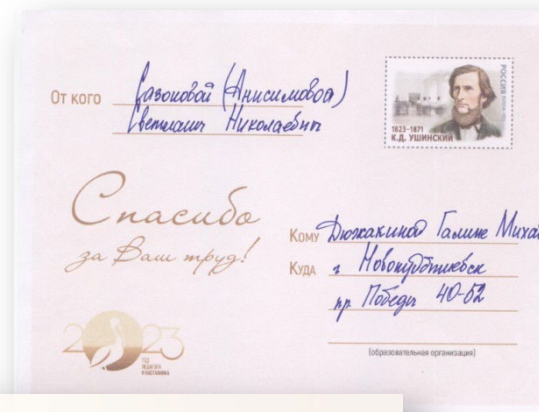 От кого Сазоновой (Анисимовой)
Светланы Николаевны
РОССИЯ
1823–1871
К.Д. УШИНСКИЙ
Спасибо
за Ваш труд!
Кому Дюжакиной Галине Миха
Куда г Новокуйбышевск
пр Победы 40-52
(образовательная организация)
2023
ГОД
ПЕДАГОГА
И НАСТАВНИКА